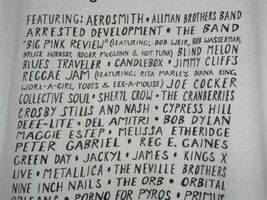 FEATURING: AEROSMITH • ALLMAN BROTHERS BAND
ARRESTED DEVELOPMENT • THE BAND
"BIG PINK REVIEW" (FEATURING; BOB WEIR, ROB WASSERMAN,
BRUCE HORNSBY, ROGER McGUINN & HOT TUNA) BLIND MELON
BLUES TRAVELER • CANDLEBOX • JIMMY CLIFFS
REGGAE JAM (FEATURING; RITA MARLEY, DIANA KING,
WORL-A-GIRL, TOOTS & EEK-A-MOUSE) JOE COCKER
COLLECTIVE SOUL • SHERYL CROW • THE CRANBERRIES
CROSBY STILLS AND NASH • CYPRESS HILL
DEEE-LITE • DEL AMITRI • BOB DYLAN
MAGGIE ESTEP • MELISSA ETHERIDGE
PETER GABRIEL • REG E. GAINES
GREEN DAY • JACKYL • JAMES • KINGS X
LIVE • METALLICA • THE NEVILLE BROTHERS
NINE INCH NAILS • THE ORB • ORBITAL
ORLEANS • PORNO FOR PYROS • PRIMUS